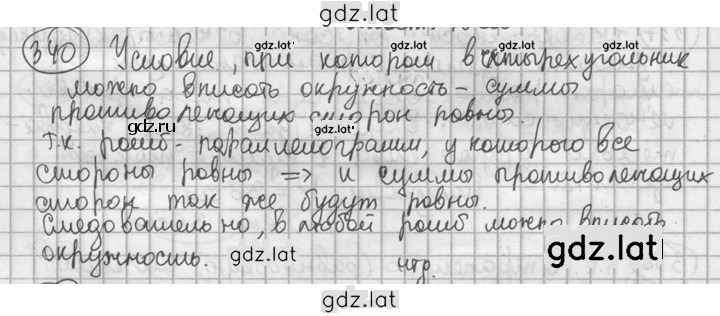 gdz.lat
340 Условие, при котором в четырехугольник
gdz.lat gdz.lat
можно вписать окружность - суммы
противолежащих сторон равны.
gdz.ru gdz.lat
т.к. ромб - параллелограмм, у которого все
стороны равны => и суммы противолежащих
сторон так же будут равны.
Следовательно, в любой ромб можно вписать
окружность. чтд.
gdz.lat gdz.lat
gdz.lat